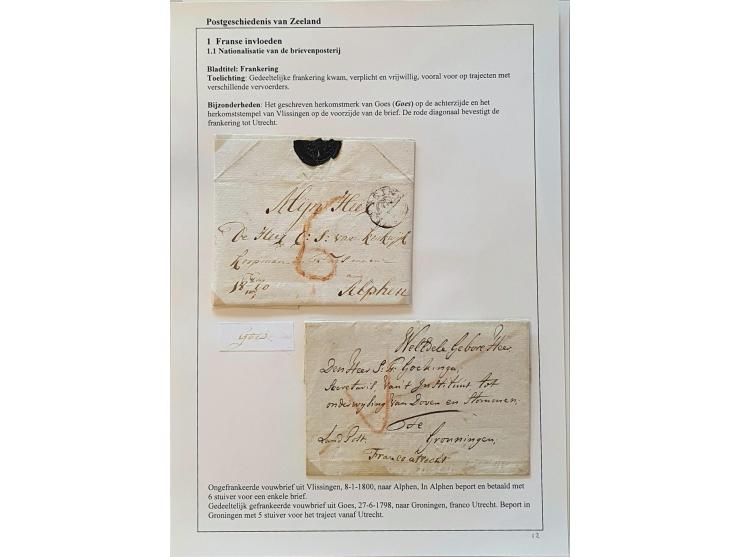 Postgeschiedenis van Zeeland
1 Franse invloeden
1.1 Nationalisatie van de brievenposterij
Bladtitel: Frankering
Toelichting: Gedeeltelijke frankering kwam, verplicht en vrijwillig, vooral voor op trajecten met
verschillende vervoerders.
Bijzonderheden: Het geschreven herkomstmerk van Goes (Goes) op de achterzijde en het
herkomststempel van Vlissingen op de voorzijde van de brief. De rode diagonaal bevestigt de
frankering tot Utrecht.
Mijn Heer
De Heer C: S: van
Koopman
Alphen
6
Goes
WelEdele Gebore Heer
Den Heer
Secretaris van't Instituut tot
onderwijzing van Doven en Stommen.
te
Land Post. Gronningen,
Franco utrecht
Ongefrankeerde vouwbrief uit Vlissingen, 8-1-1800, naar Alphen, In Alphen beport en betaald met
6 stuiver voor een enkele brief.
Gedeeltelijk gefrankeerde vouwbrief uit Goes, 27-6-1798, naar Groningen, franco Utrecht. Beport in
Groningen met 5 stuiver voor het traject vanaf Utrecht.
12